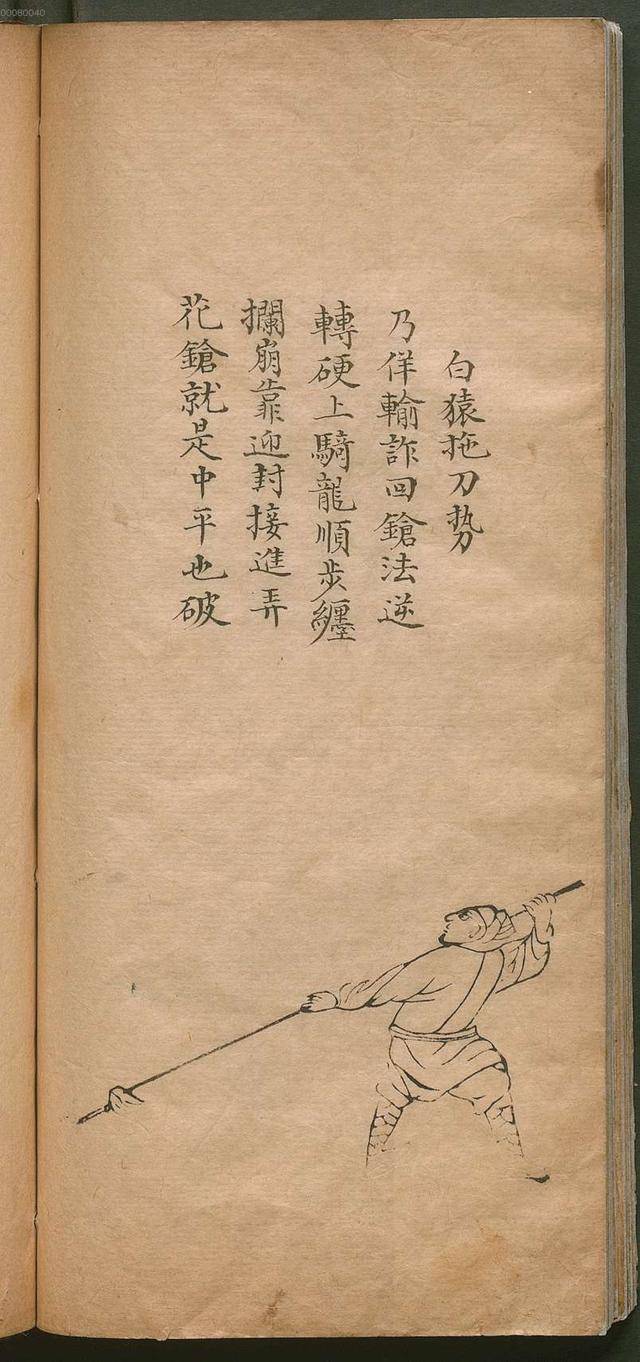 00080040
白猿拖刀势
乃佯輸詐回鎗法逆
轉硬上騎龍順步纏
攔崩靠迎封接進弄
花鎗就是中平也破